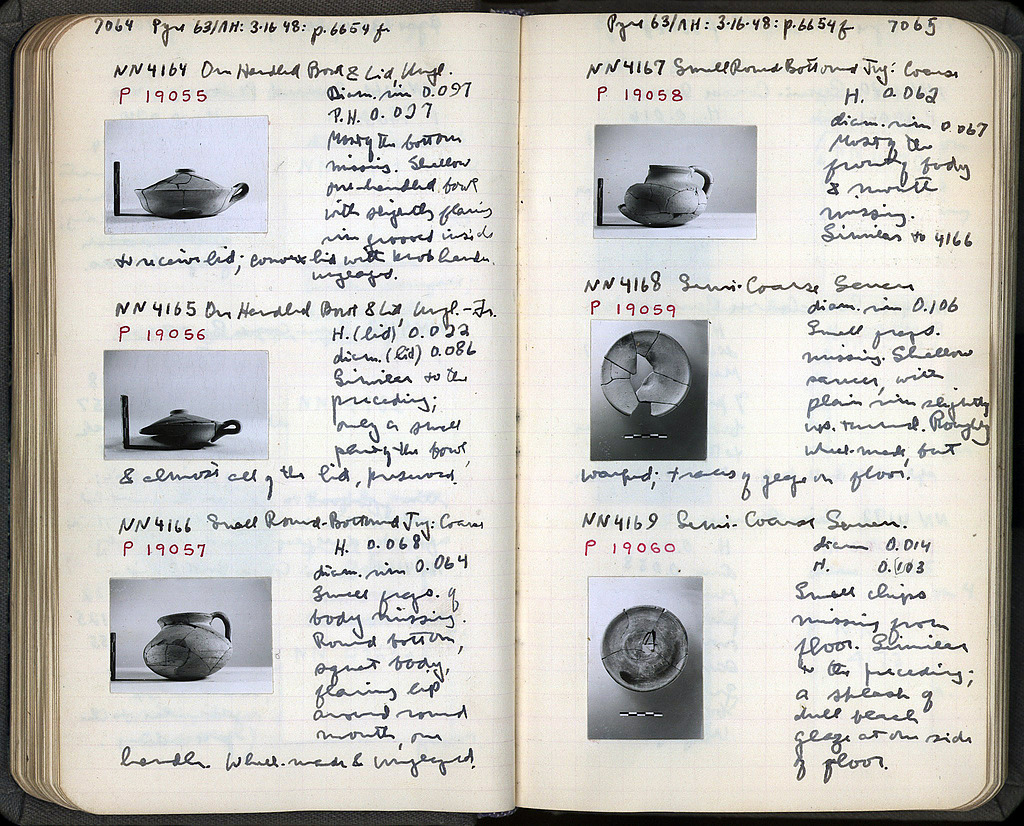 7064 Pyre 63/NH: 3·16·48: p. 6654 f.
NN 4164 One Handled Bowl & Lid, Ungl.
P 19055
Diam. rim 0.097
P.H. 0.027
Most of the bottom
missing. Shallow
one-handled bowl
with slightly flaring
rim grooved inside
to receive lid; convex lid with knob handle.
unglazed.
NN 4165 One Handled Bowl & Lid, Ungl. - Fr.
P 19056
H. (lid) 0.022
diam. (lid) 0.086
Similar to the
preceding;
only a small
part of the bowl,
& almost all of the lid, preserved.
NN 4166 Small Round-Bottomed Jug: Coarse
P 19057
H. 0.068
diam. rim 0.064
Small frags. of
body missing.
Round bottom,
squat body,
flaring lip
around round
mouth, one
handle. Wheel-made & unglazed.
Pyre 63/NH: 3·16·48: p. 6654 f. 7065
NN 4167 Small Round Bottomed Jug: Coarse
P 19058
H. 0.062
diam. rim 0.067
Most of the
front of body
& mouth
missing.
Similar to 4166
NN 4168 Semi-Coarse Saucer
P 19059
diam. rim 0.106
Small frags.
missing. Shallow
saucer, with
plain rim slightly
up-turned. Roughly
wheel-made, but
warped; traces of glaze on floor.
NN 4169 Semi-Coarse Saucer.
P 19060
diam 0.014
H. 0.103
Small chips
missing from
floor. Similar
to the preceding;
a splash of
dull black
glaze at one side
of floor.